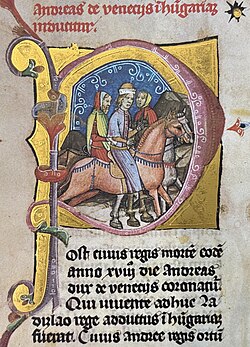 Andreas de venecijs ī hūgariaȝ
inducitur.
Post cuius regis mortē eodē
anno xviij die Andreas
dux de venecijs coronatur.
Qui uiuente adhuc La
dizlao rege adductus ī hūgariaȝ
fuerat. Cuius andree regis ortū